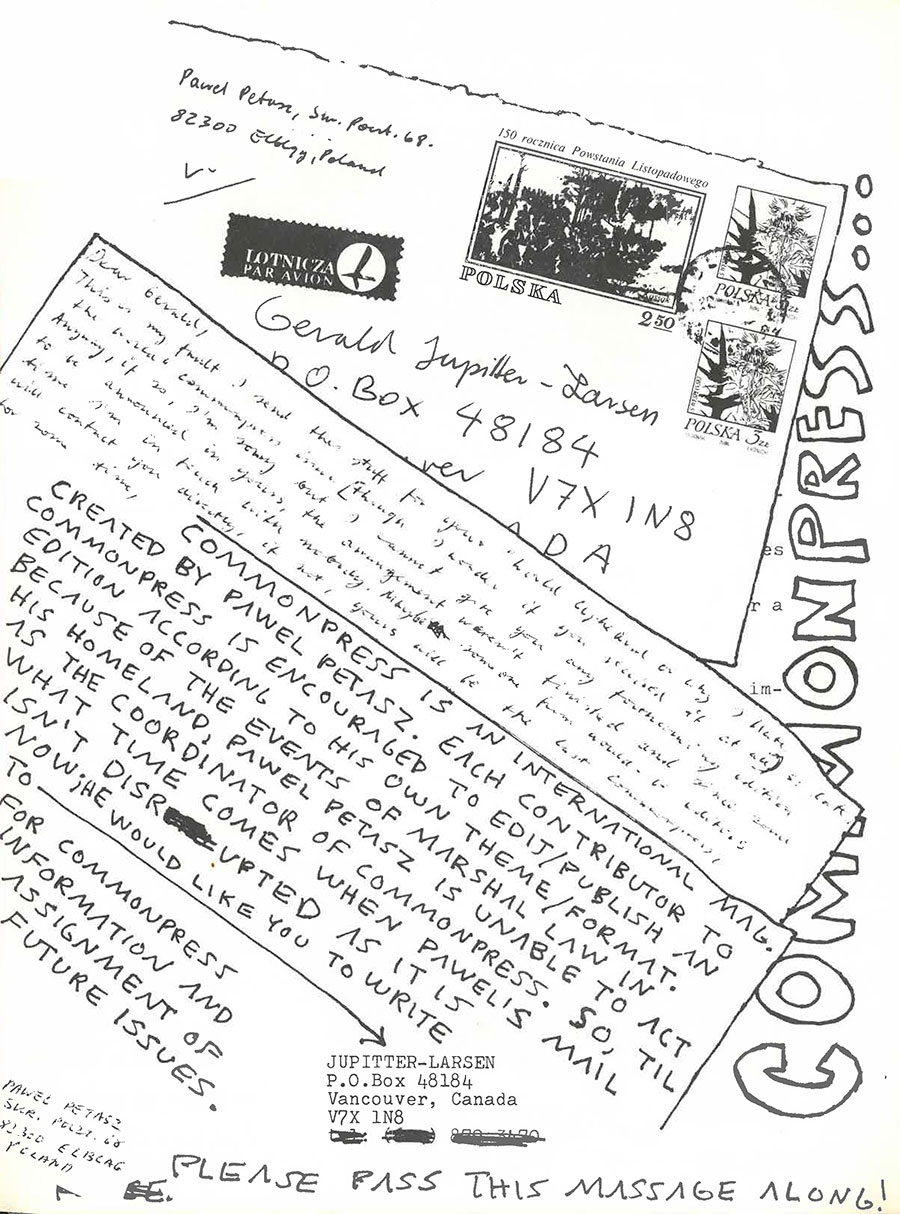 Pawel Petasz, Skr. Poczt. 68.
82300 Elbląg, Poland
150 rocznica Powstania Listopadowego
POLSKA
2 50
POLSKA
POLSKA 3 zł
LOTNICZA
PAR AVION
Gerald Jupitter-Larsen
P.O. Box 48184
ver V7X 1N8
ADA
Dear Gerald,
This is my fault I send this stuff to your
the
Anyway, if so, I'm sorry but I cannot give you any
to be announced in yours, the
time I'm in touch with nobody. Maybe some one from would-be editors
will contact you directly, if not, yours will be the last commonpress,
for some time,
COMMONPRESS IS AN INTERNATIONAL MAG.
CREATED BY PAWEL PETASZ. EACH CONTRIBUTOR TO
COMMONPRESS IS ENCOURAGED TO EDIT/PUBLISH AN
EDITION ACCORDING TO HIS OWN THEME/FORMAT.
BECAUSE OF THE EVENTS OF MARSHAL LAW IN
HIS HOMELAND, PAWEL PETASZ IS UNABLE TO ACT
AS THE COORDINATOR OF COMMONPRESS. SO, TIL
WHAT TIME COMES WHEN PAWEL'S MAIL
ISN'T DISRUPTED AS IT IS
NOW, HE WOULD LIKE YOU TO WRITE
TO
FOR COMMONPRESS
INFORMATION AND
ASSIGNMENT OF
FUTURE ISSUES.
JUPITTER-LARSEN
P.O.Box 48184
Vancouver, Canada
V7X 1N8
PAWEL PETASZ
SKR. POCZT. 68
82300 ELBLAG
POLAND
PLEASE PASS THIS MASSAGE ALONG!
COMMONPRESS...
es
r a
im-